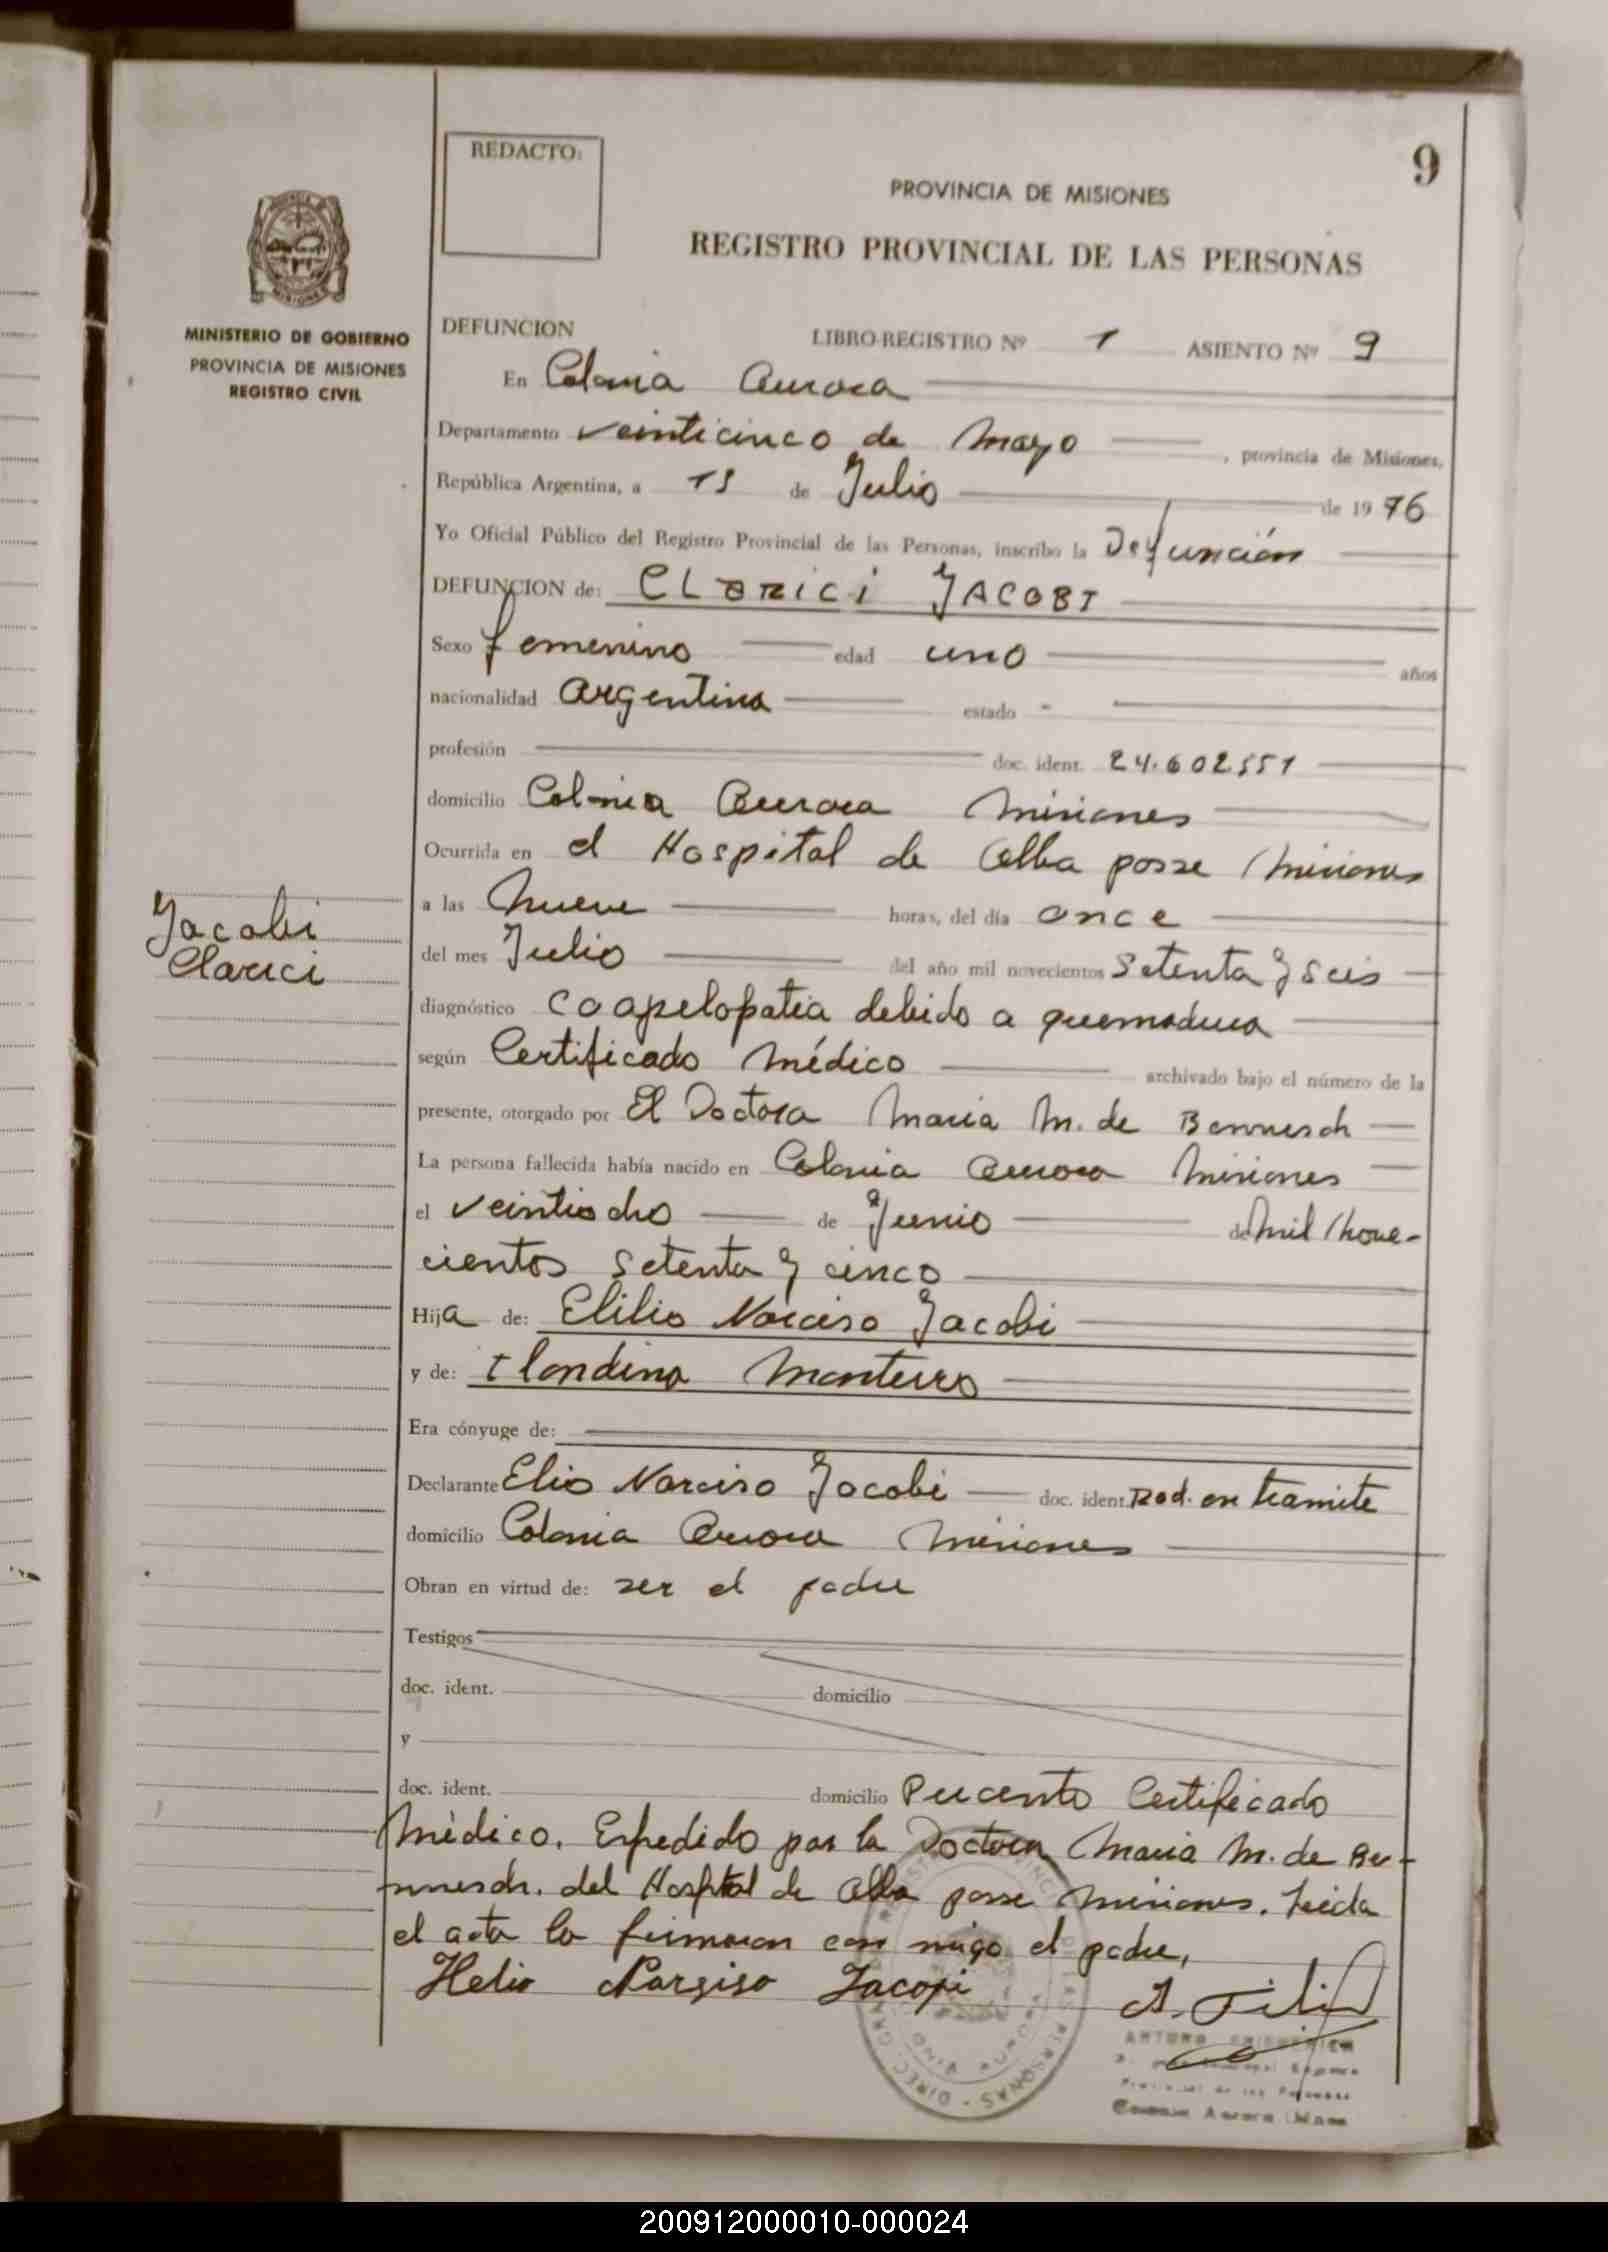 9
REDACTO:
PROVINCIA DE MISIONES
REGISTRO PROVINCIAL DE LAS PERSONAS
MINISTERIO DE GOBIERNO
PROVINCIA DE MISIONES
REGISTRO CIVIL
DEFUNCION LIBRO-REGISTRO Nº 1 ASIENTO Nº 9
En Colonia Aurora
Departamento veinticinco de Mayo, provincia de Misiones,
República Argentina, a 15 de Julio de 1976
Yo Oficial Público del Registro Provincial de las Personas, inscribo la Defunción
DEFUNCION de: CLARICI JACOBI
Sexo femenino edad uno años
nacionalidad Argentina estado -
profesión doc. ident. 24.602551
domicilio Colonia Aurora Misiones
Ocurrida en el Hospital de Alba posse Misiones
a las Nueve horas, del día once
Jacobi
Clarici
del mes Julio del año mil novecientos setenta y seis
diagnóstico coapelopatia debido a quemadura
según Certificado Médico archivado bajo el número de la
presente, otorgado por El Doctora Maria M. de
La persona fallecida había nacido en Colonia Aurora Misiones
el veintiocho de Junio de mil nove-
cientos setenta y cinco
Hija de: Elilio Narciso Jacobi
y de: Monteiro
Era cónyuge de:
Declarante Elio Narciso Jacobi doc. ident. Rad. en tramite
domicilio Colonia Aurora Misiones
Obran en virtud de: ser el padre
Testigos
doc. ident. domicilio
y
doc. ident. domicilio Precento Certificado
Médico. Expedido por la Doctora Maria M. de
del Hospital de Alba posse Misiones. Leida
el acta la firmaron con migo el padre,
Helio Narsiso Jacopi
ARTURO
Colonia Aurora
200912000010-000024